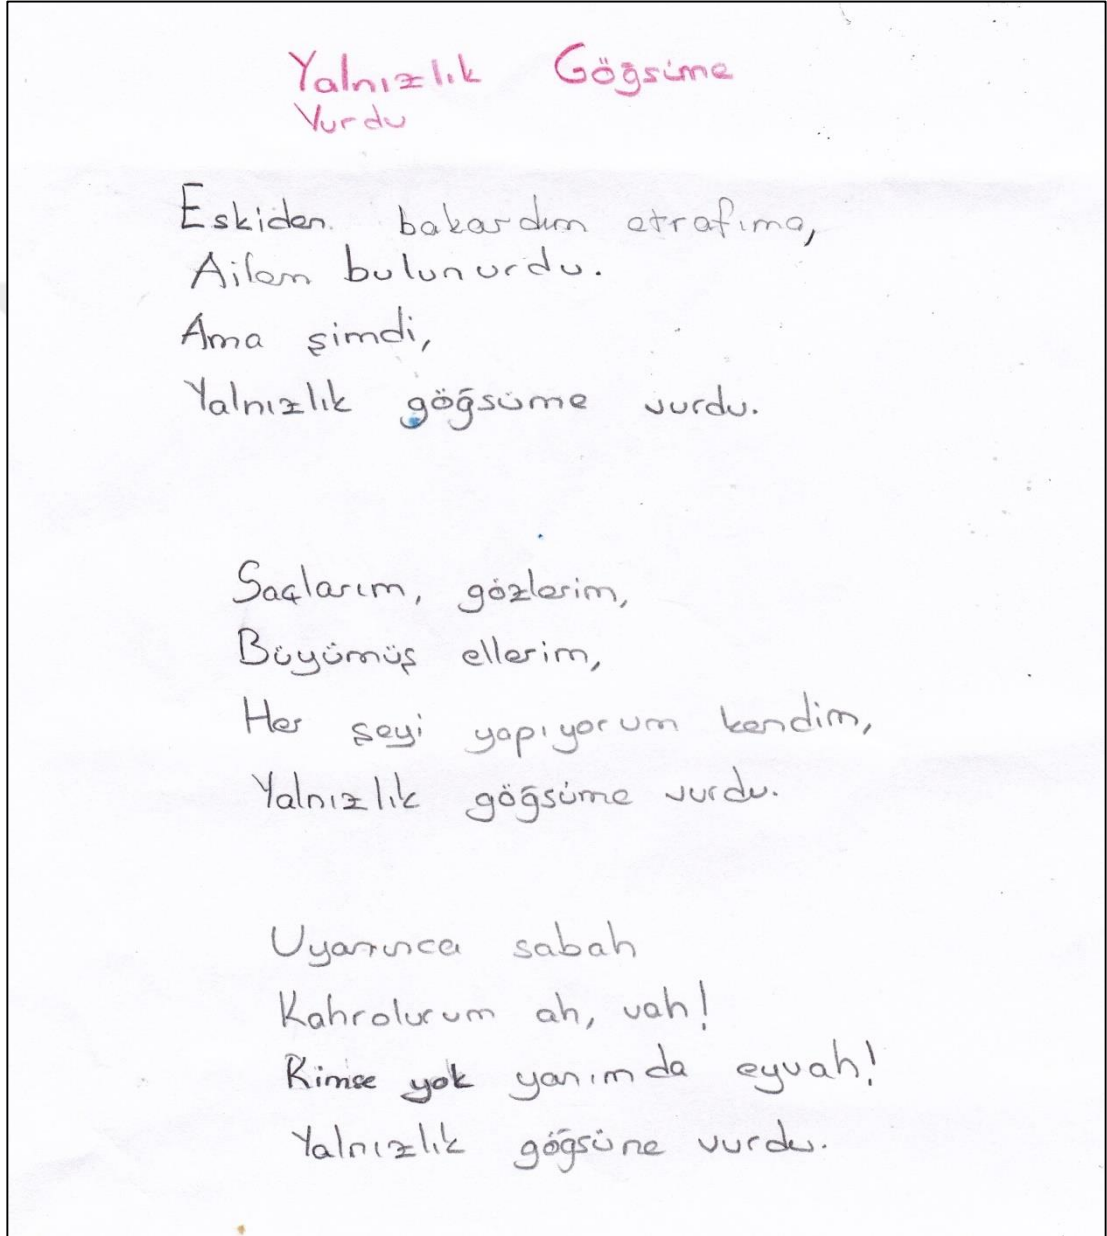 Yalnızlık Göğsüme
Vurdu
Eskiden bakardım etrafıma,
Ailem bulunurdu.
Ama şimdi,
Yalnızlık göğsüme vurdu.
Saçlarım, gözlerim,
Büyümüş ellerim,
Her şeyi yapıyorum kendim,
Yalnızlık göğsüme vurdu.
Uyanınca sabah
Kahrolurum ah, vah!
Kimse yok yanımda eyvah!
Yalnızlık göğsüne vurdu.